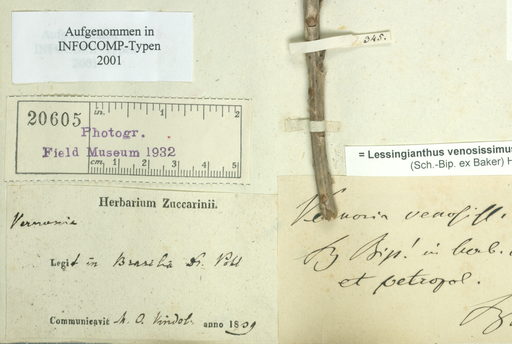 Aufgenommen in
INFOCOMP-Typen
2001
348.
20605
in. 1 2
Photogr.
Field Museum 1932
cm 1 2 3 4 5
= Lessingianthus venosissimus
(Sch.-Bip. ex Baker) H
Herbarium Zuccarinii.
Vernonia
Legit in Brasilia Dr. Pohl
Communicavit M. O. Vindob. anno 1839
Vernonia venosiss.
Sz Bip! in herb.
et petropol.